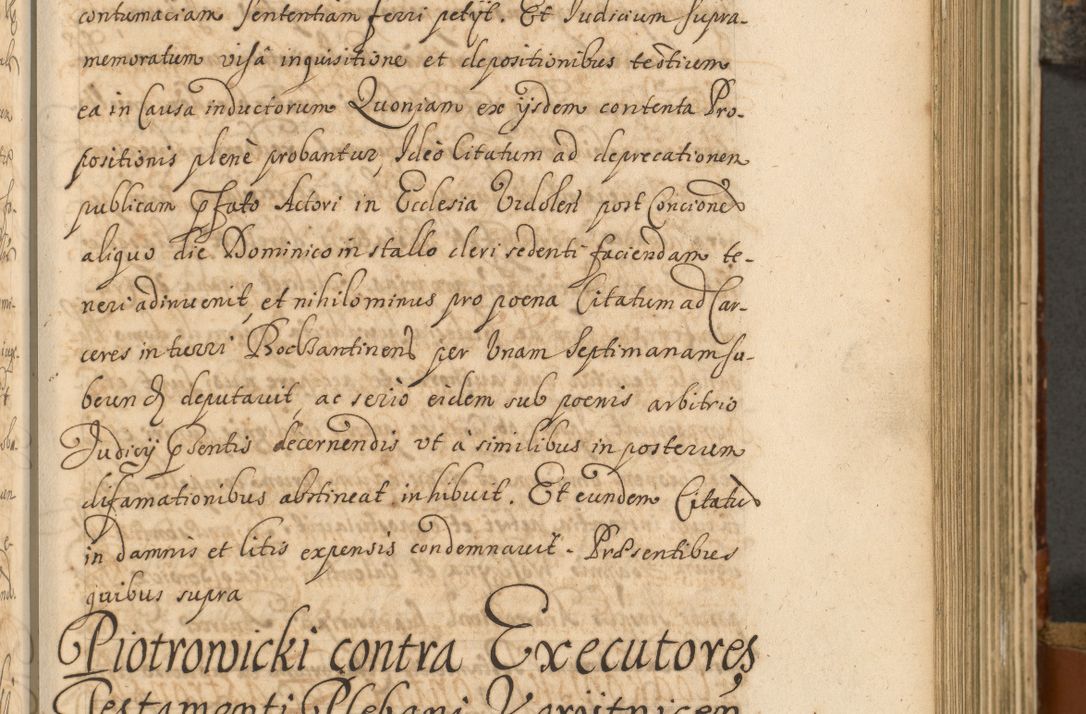 contumaciam sententiam ferri petijt. Et Iudicium supra-
memoratum visâ inquisitione et depositionibus testium
ea in Causa inductorum Quoniam ex ijsdem contenta Pro-
positionis plenè probantur, Ideo Citatum ad deprecationem
publicam pfato Actori in Ecclesia post Concionē
aliquo die Dominico in stallo cleri sedenti faciendam te-
neri adinuenit, et nihilominus pro poena Citatum ad Car-
ceres in turri per Vnam Septimanam su-
beun deputauit, ac serio eidem sub poenis arbitrio
Iudicij psentis decernendis vt à similibus in posterum
difamationibus abstineat inhibuit. Et eundem Citatū
in damnis et litis expensis condemnauit. Præsentibus
quibus supra
Piotrowicki contra Executores
Testamenti Plebani